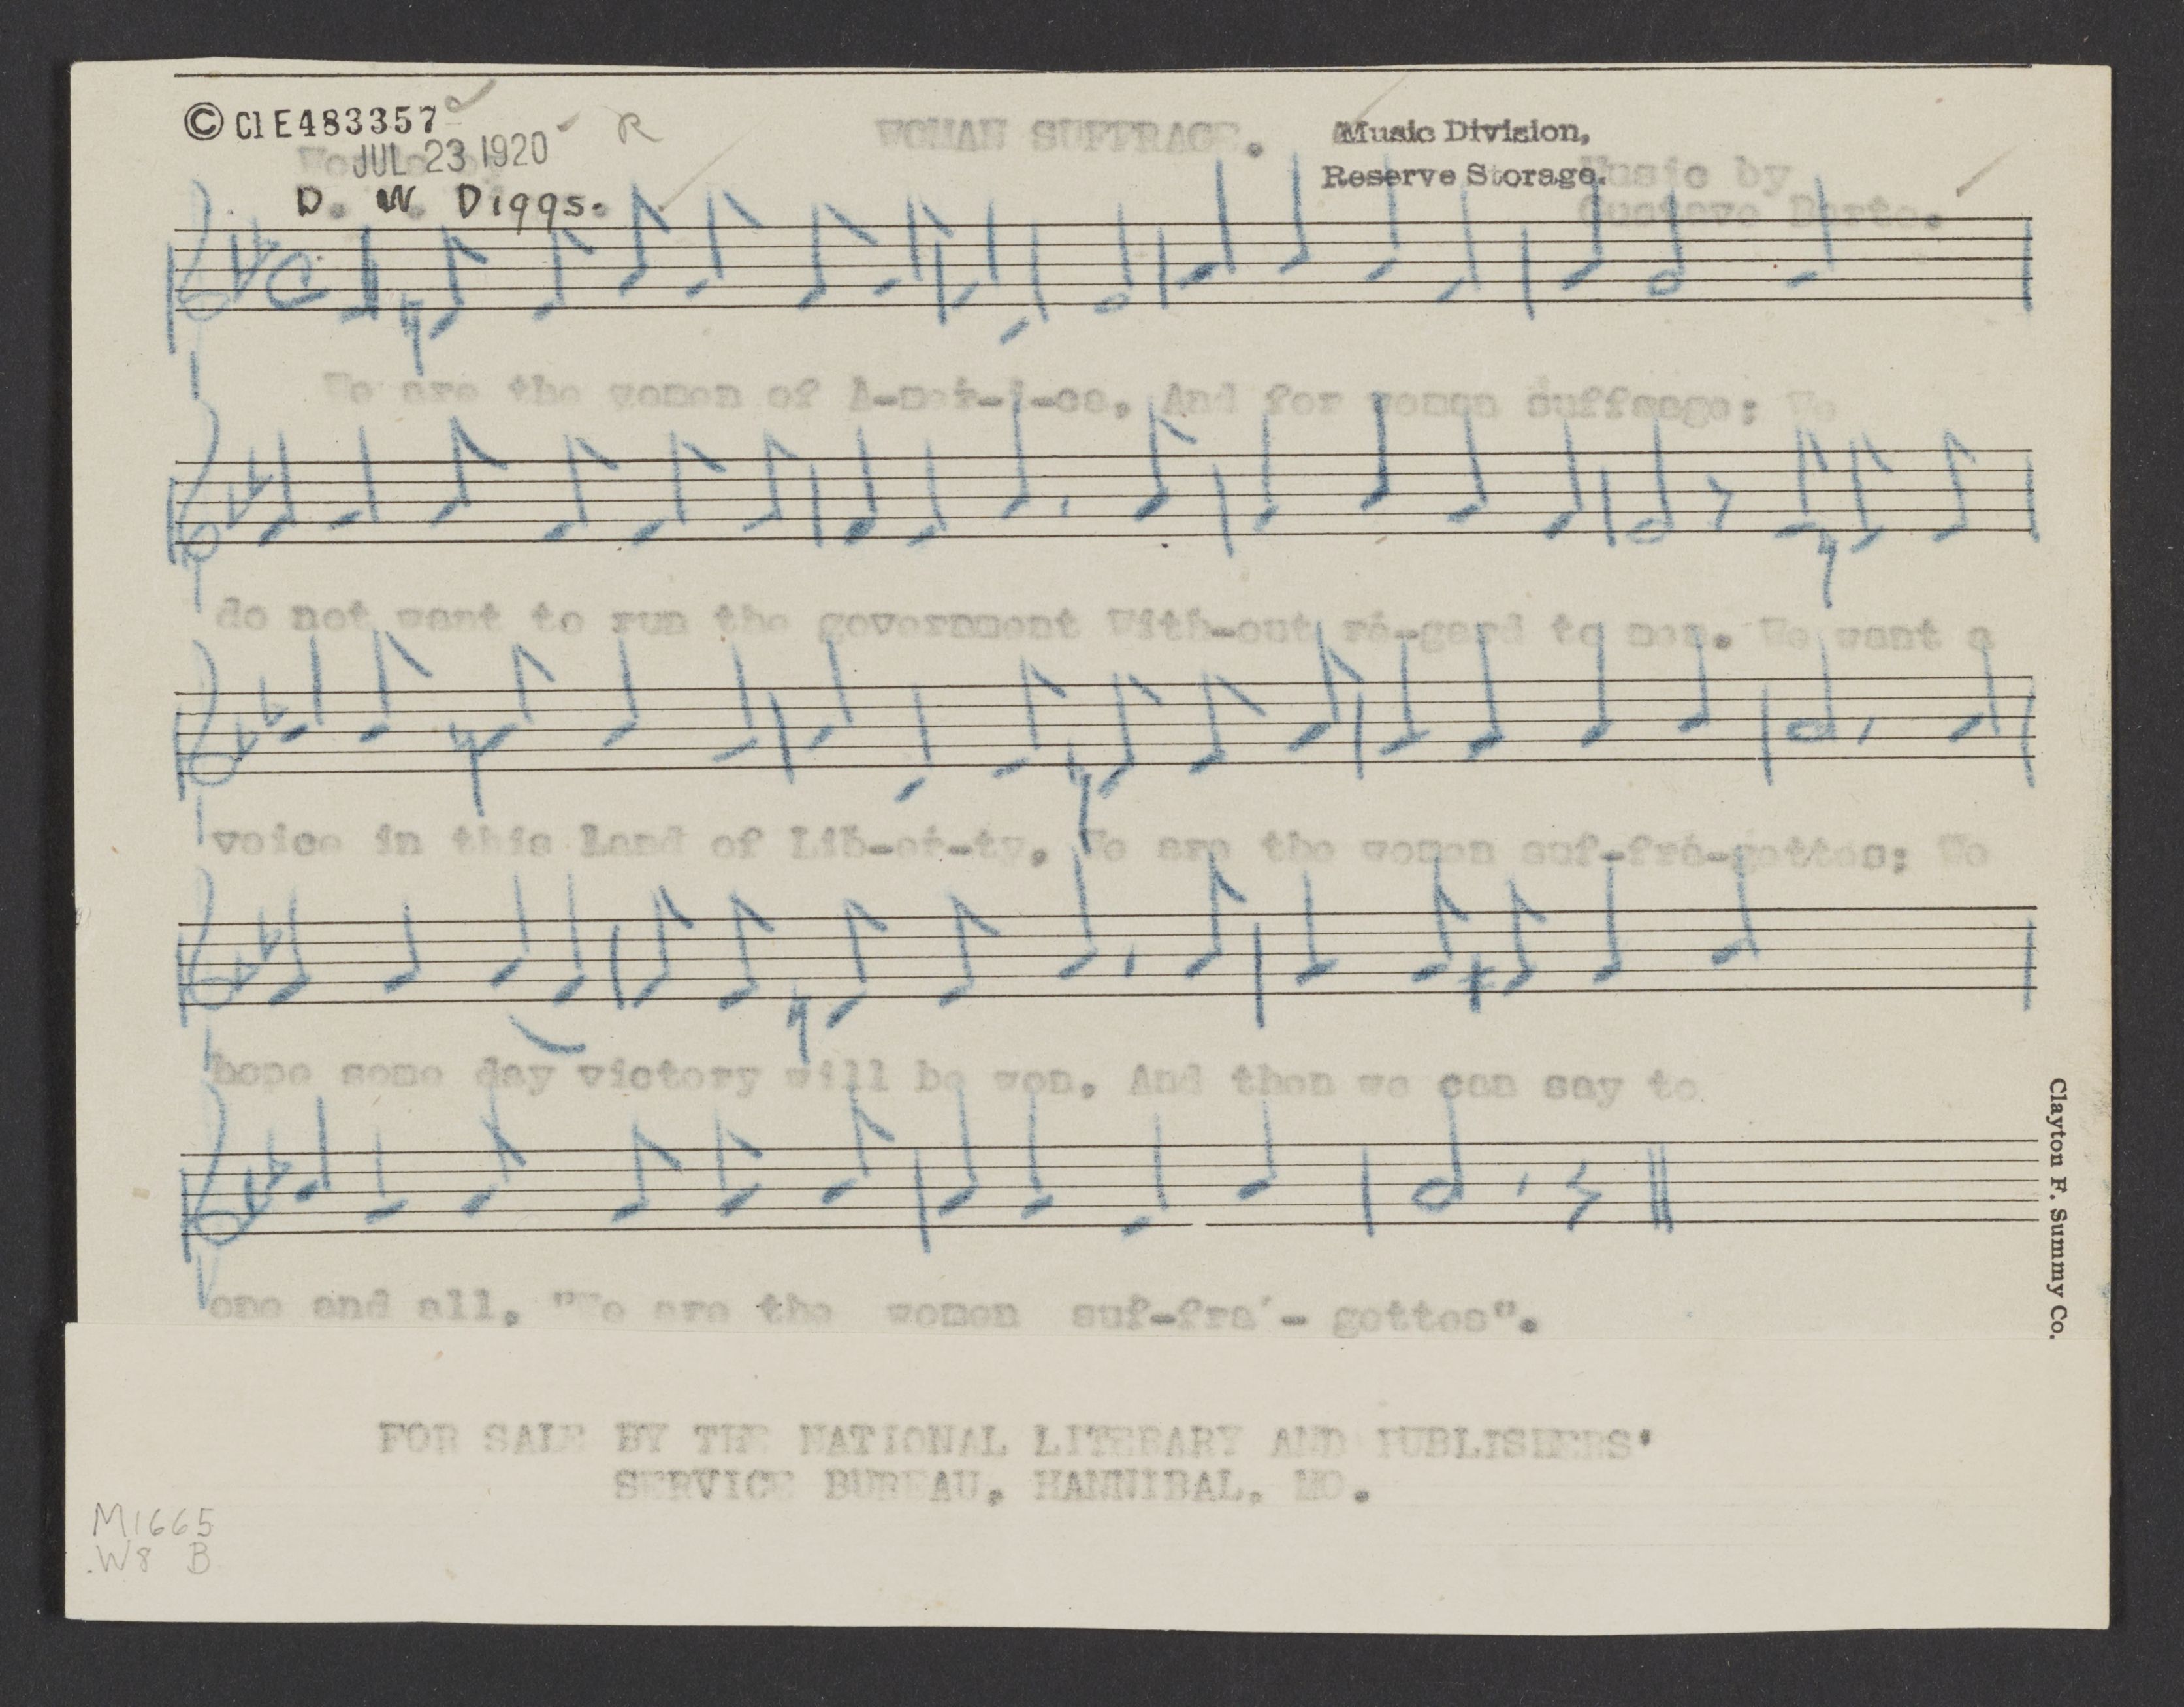 © Cl E483357
JUL 23 1920
R
WOMAN SUFFRAGE.
Music Division,
Reserve Storage.
Words by
D. W. Diggs.
Music by
Gustave
We are the women of A-mer-i-ca, And for women suffrage; We
do not want to run the government With-out re-gard to men. We want a
voice in this Land of Lib-er-ty. We are the women suf-fra-gettes; We
hope some day victory will be won. And then we can say to
one and all. "We are the women suf-fra'- gettes".
Clayton F. Summy Co.
FOR SALE BY THE NATIONAL LITERARY AND PUBLISHERS'
SERVICE BUREAU, HANNIBAL, MO.
M1665
.W8 B